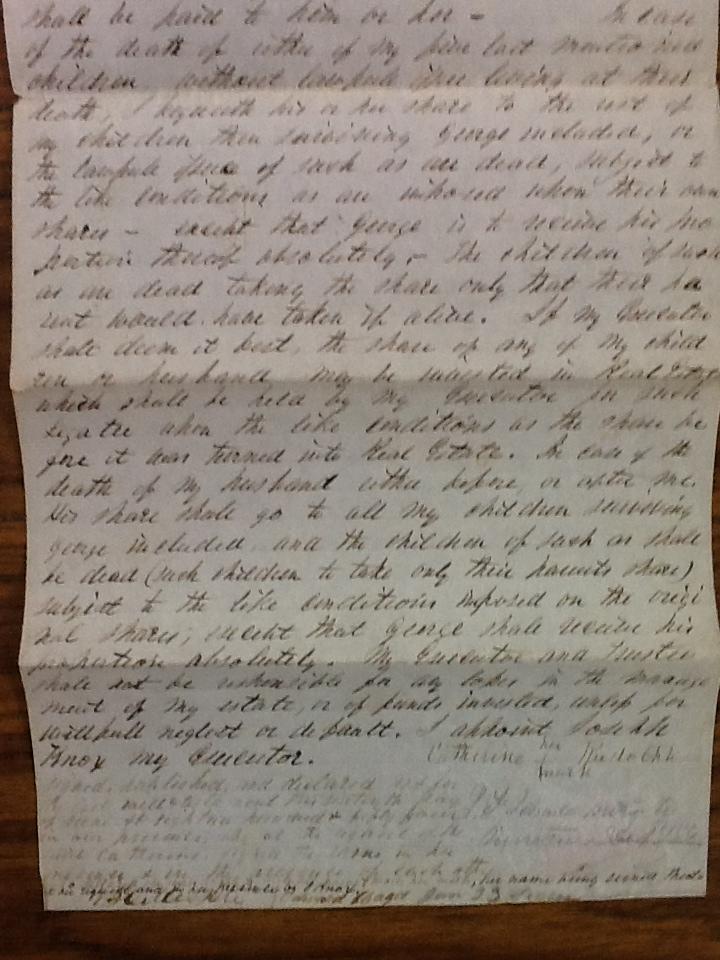 shall be paid to him or her - In case
of the death of either of my five last mentioned
children, without lawfull issue living at their
death, I bequeath his or her share to the rest of
my children then surviving George included, or
the lawfull issue of such as are dead, subject to
the like conditions as are imposed upon their own
shares - except that George is to receive his pro
portion thereof absolutely - The children of such
as are dead taking the share only that their pa
rent would have taken if alive. If my Executor
shall deem it best, the share of any of my child
ren or husband, may be invested in Real Estate
which shall be held by my Executor for such
legatee upon the like conditions as the share be
fore it was turned into Real Estate. In case of the
death of my husband either before, or after me.
His share shall go to all my children surviving
George included, and the children of such as shall
be dead (such children to take only their parents share)
subject to the like conditions imposed on the origi
nal shares, except that George shall receive his
proportion absolutely. My Executor and Trustee
shall not be responsible for any losses in the manage
ment of my estate, or of funds invested, unless for
willfull neglect or default. I appoint Joseph
Knox my Executor. Catherine her mark Rudolph
Signed, published, and declared
in our presence, at the request of the
Catherine
in the presence of each other, her name being signed
at her request and in her presence by J Knox